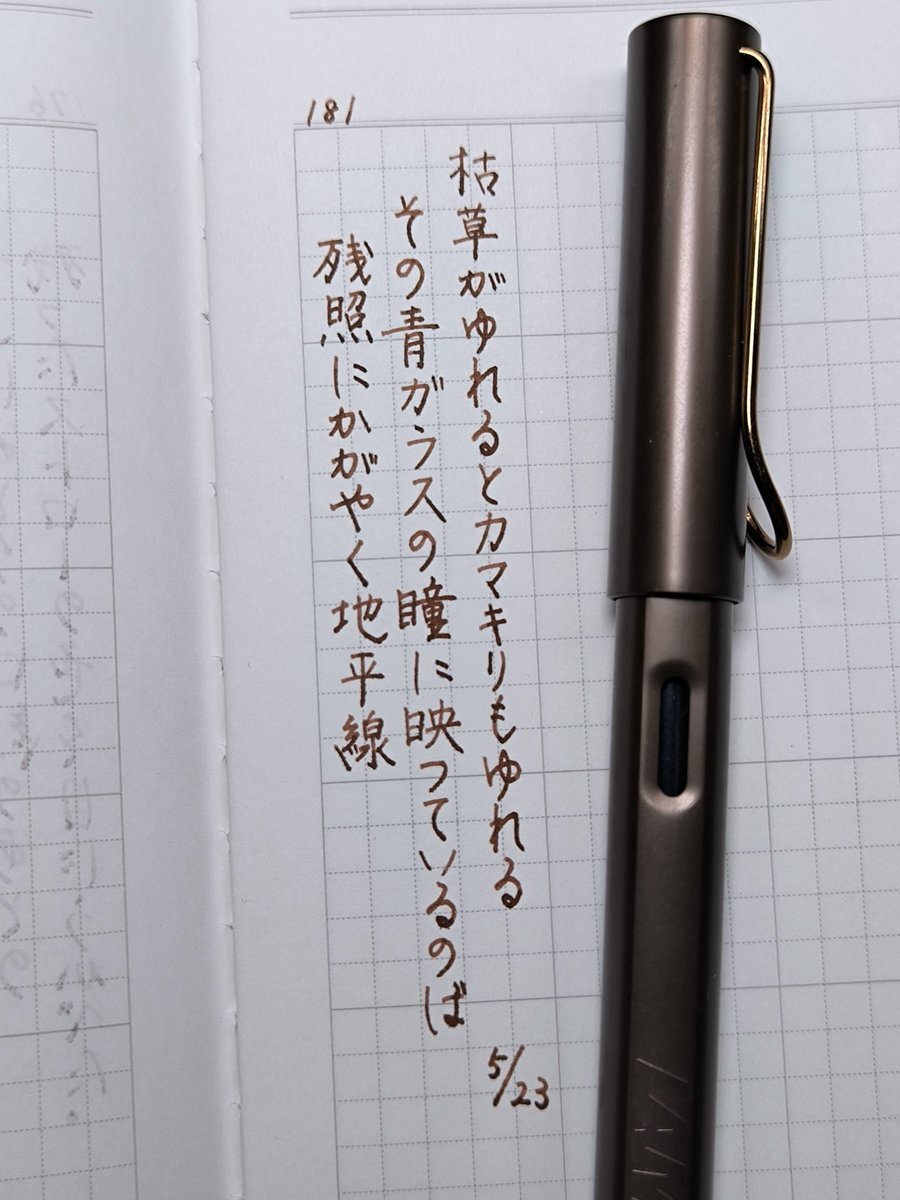 181
枯草がゆれるとカマキリもゆれる
その青ガラスの瞳に映つているのば
残照にかがやく地平線
5/23
LAMY